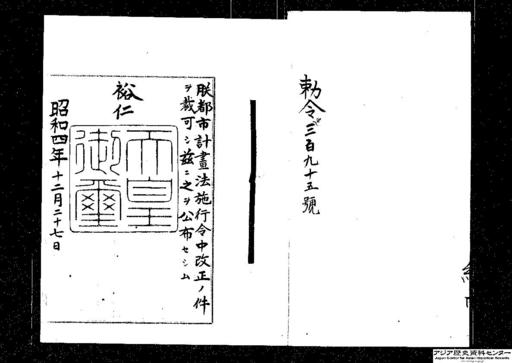 勅令第三百九十五號
朕都市計畫法施行令中改正ノ件
ヲ裁可シ茲ニ之ヲ公布セシム
裕仁
天皇御璽
昭和四年十二月二十七日
アジア歴史資料センター
Japan Center for Asian Historical Records